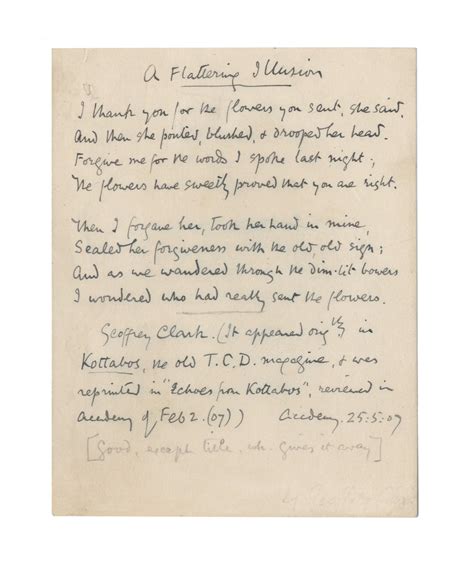 A Flattering Illusion
I thank you for the flowers you sent, she said,
And then she pouted, blushed, & drooped her head.
Forgive me for the words I spoke last night;
The flowers have sweetly proved that you are right.
Then I forgave her, took her hand in mine,
Sealed her forgiveness with the old, old sign;
And as we wandered through the dim-lit bowers
I wondered who had really sent the flowers.
Geoffrey Clark. (It appeared origly in
Kottabos, the old T.C.D. magazine, & was
reprinted in "Echoes from Kottabos", reviewed in
Academy of Feb 2. (07)) Academy. 25:5:07
[Good, except title, wh. gives it away]